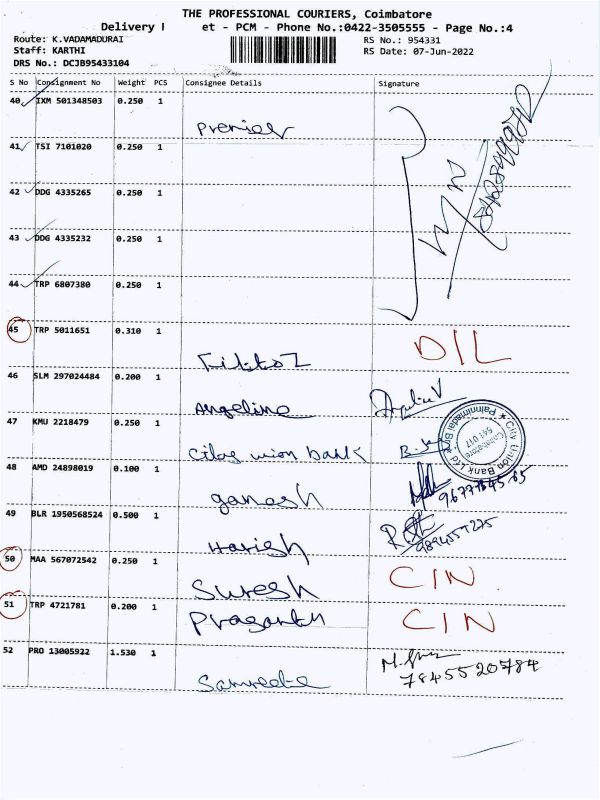 THE PROFESSIONAL COURIERS, Coimbatore
Delivery et - PCM - Phone No.:0422-3505555 - Page No.:4
Route: K.VADAMADURAI RS No.: 954331
Staff: KARTHI RS Date: 07-Jun-2022
DRS No.: DCJB95433104
S No Consignment No Weight PCS Consignee Details Signature
40 IXM 501348503 0.250 1 Premier
41 TSI 7101020 0.250 1
42 DDG 4335265 0.250 1
43 DDG 4335232 0.250 1
44 TRP 6807380 0.250 1
45 TRP 5011651 0.310 1 DIL
46 SLM 297024484 0.200 1 Angeline
47 KMU 2218479 0.250 1 City union bank
City Union Bank Ltd Palnimedai Coimbatore 641 017
48 AMD 24898019 0.100 1 ganesh
49 BLR 1950568524 0.500 1 Harish
50 MAA 567072542 0.250 1 Suresh CIN
51 TRP 4721781 0.200 1 Prasanth CIN
52 PRO 13005922 1.530 1 7845520784